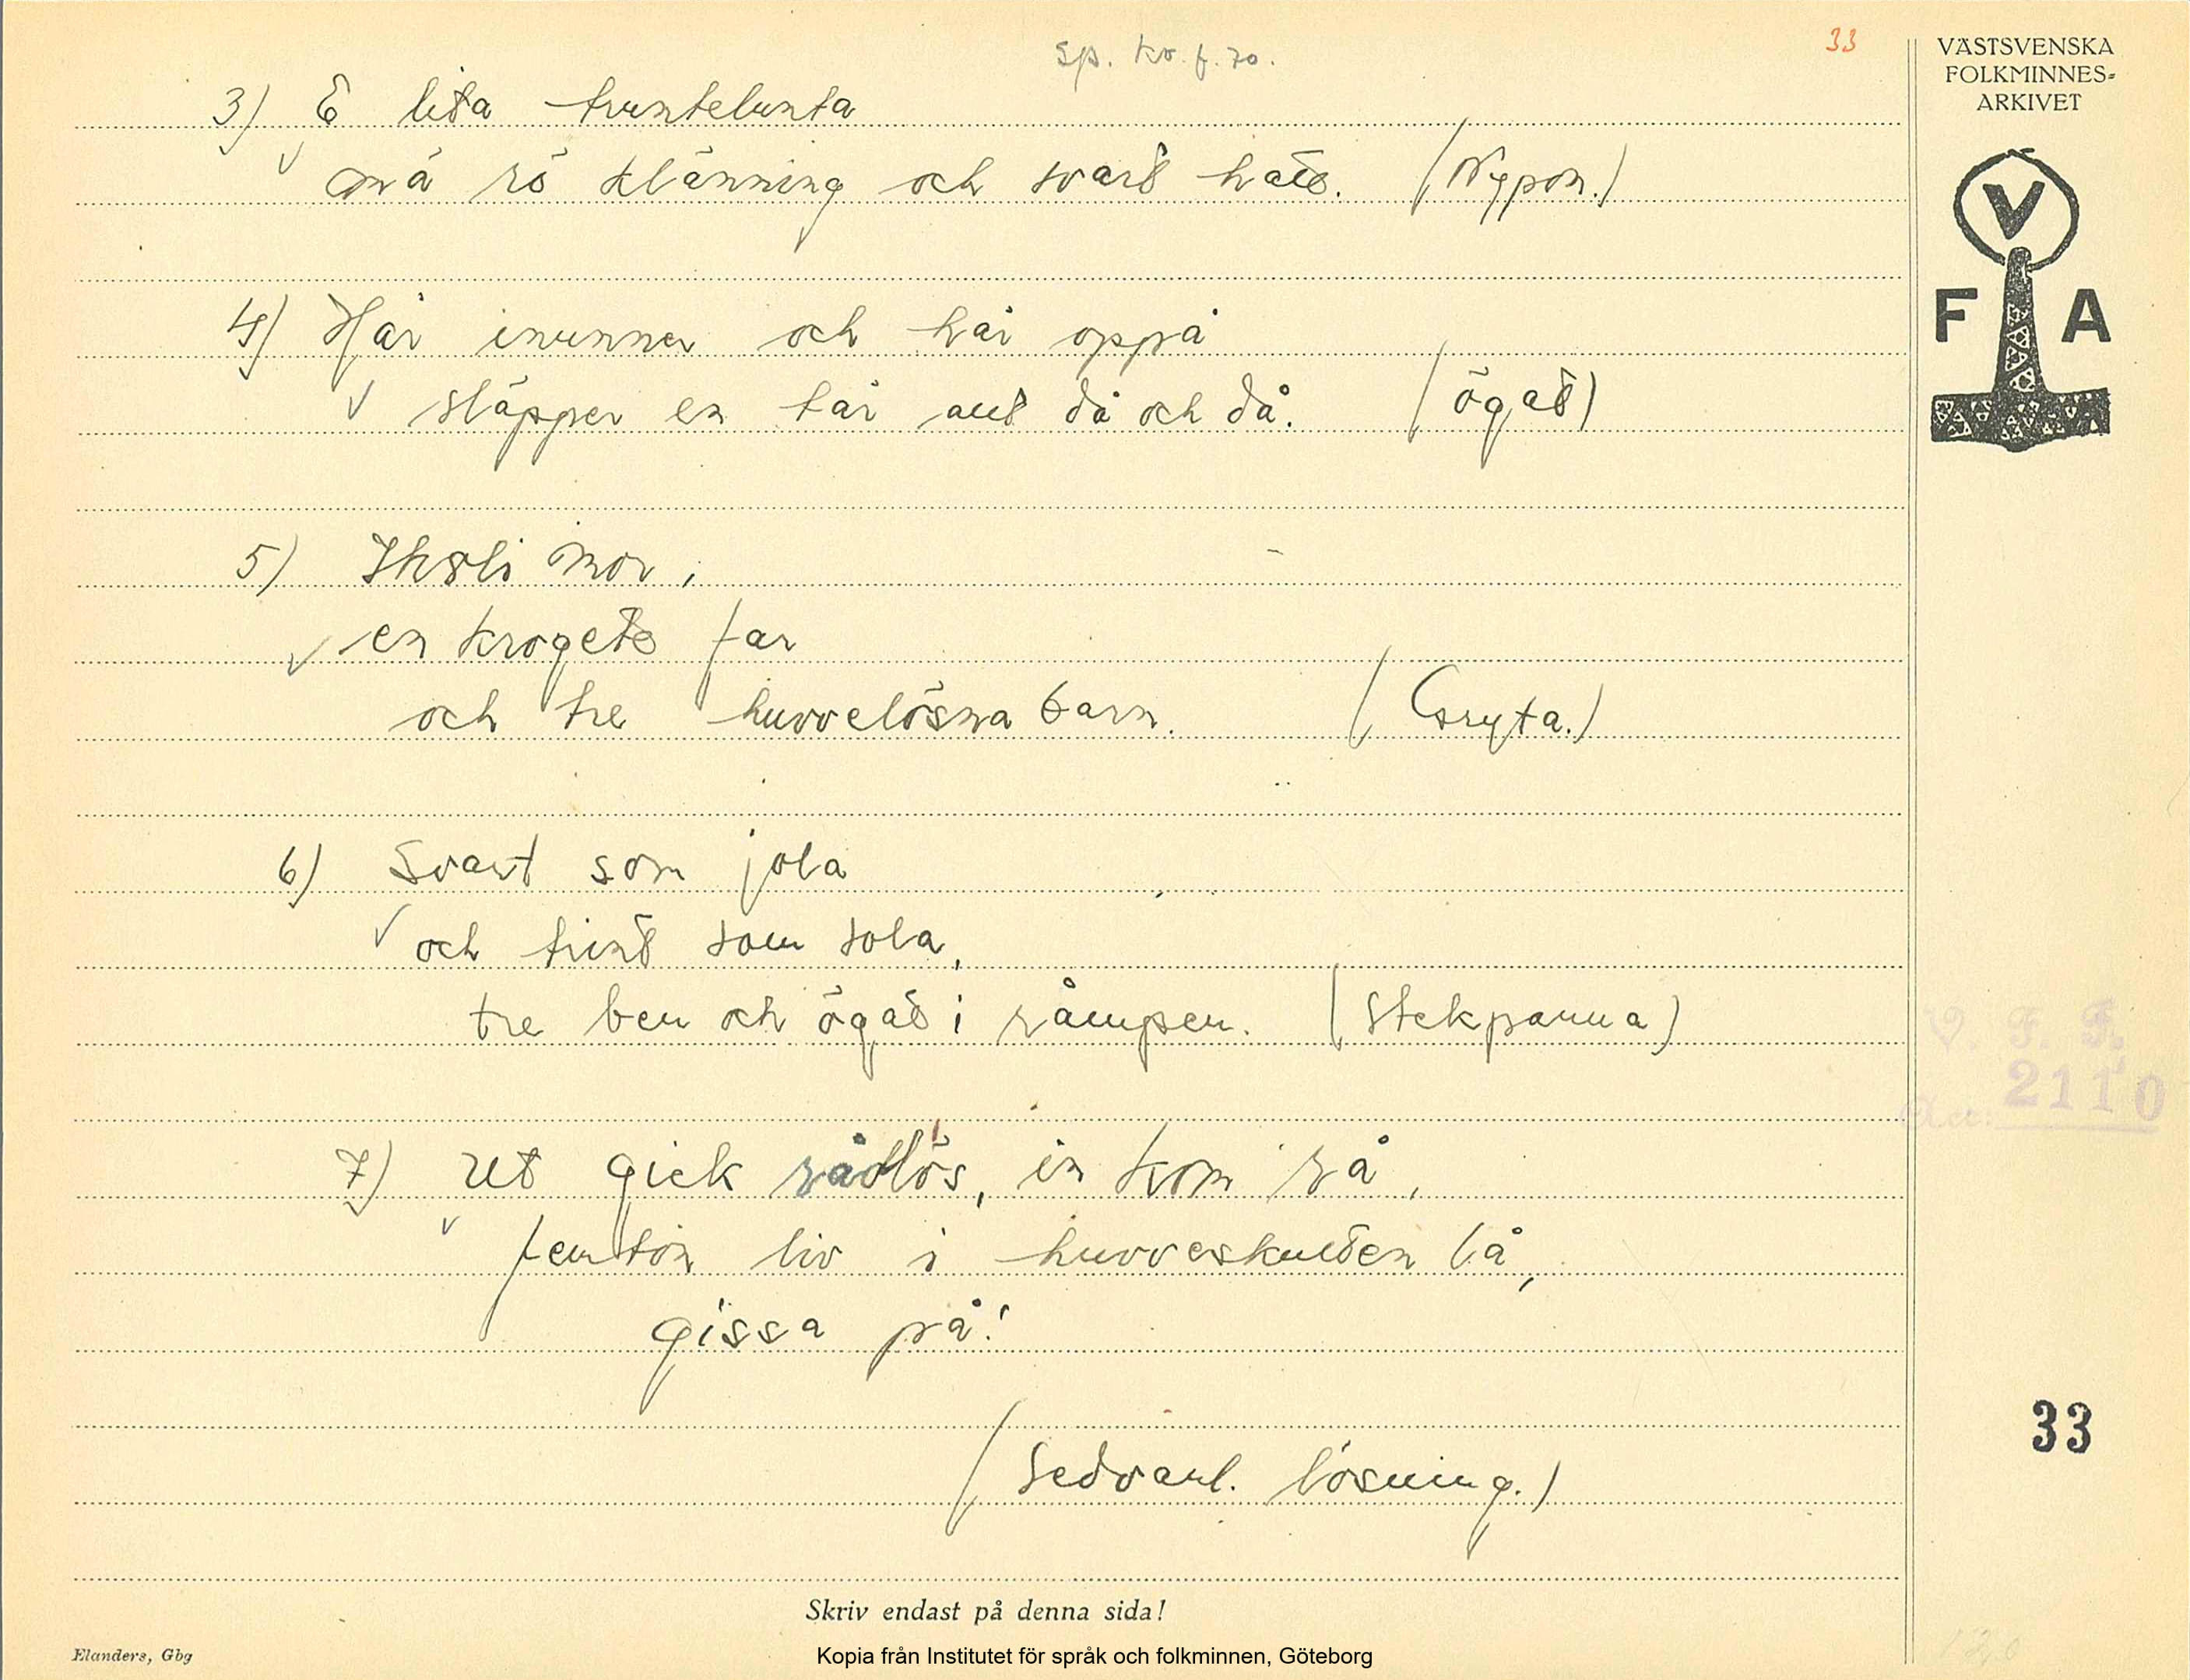 sp. kv. f. 70.
33
VÄSTSVENSKA
FOLKMINNES-
ARKIVET
3) E lita truntelunta
mä rö klänning och svart hatt. (Nypon.)
V
F A
4) Hår inunner och hår oppå
släpper en tår aut då och då. (ögat)
5) mor,
en krogete far
och tre huvvelösna barn. (Gryta.)
6) Svart som jola
och trint som sola,
tre ben och ögat i råmpen. (Stekpanna)
V. F. F.
2110
7) Ut gick rådlös, in kom rå,
femton liv i huvveskulten lå,
gissa på!
33
(Sedvanl. lösning.)
Skriv endast på denna sida!
Elanders, Gbg
Kopia från Institutet för språk och folkminnen, Göteborg